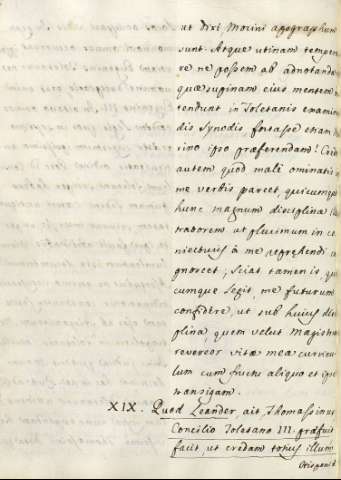 ut dixi Morini apographum
sunt. Atque utinam tempera
re me possem ab adnotando
quæ supinam eius mentem o
tendunt in Toletanis examinan
dis Synodis, fortasse etiam
rino ipso præferendam! Cre
autem quod male ominatis
me verbis parcet, quicumque
hunc magnum disciplinæ
traborem ut plurimum in co
niecturis à me reprehendi co
gnoscet; sciat tamen is, qui
cumque legit, me futurum
confidere, ut sub huius disci
plina, quem velut Magistrum
revereor vitæ meæ curricu
lum cum fructu aliquo et
transigam.
XIX. Quod Leander, ait Thomassinus
Concilio Toletano III. præfuit
facit, ut credam totius illum
Hispaniæ